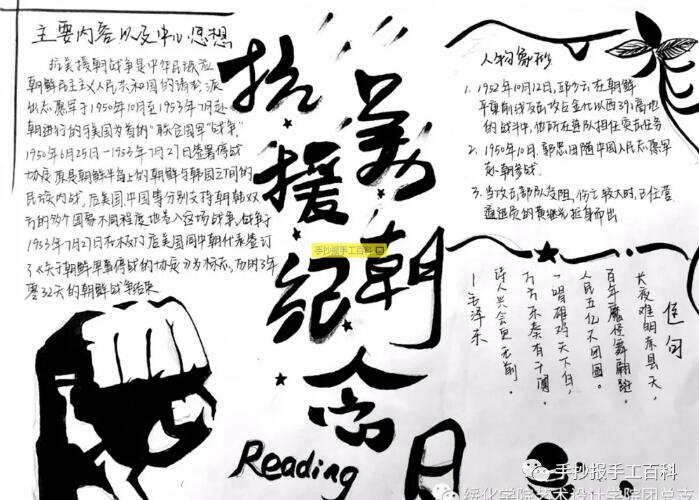 主要内容以及中心思想
抗美援朝战争是中华民族应
朝鲜民主主义人民共和国的请求派
出志愿军于1950年10月至1953年7月赴
朝进行的与美国为首的"联合国军"战争。
1950年6月25日-1953年7月27日签署停战
协定原是朝鲜半岛上的朝鲜与韩国之间的
民族内战,后美国中国等分别支持朝韩双
方的多个国家不同程度地卷入这场战争。战争于
1953年7月27日在板门店美国同中朝代表签订
了《关于朝鲜军事停战的协定》为标志,历时3年
零32天的朝鲜战争结束
抗美
援朝
纪念
日
Reading
手抄报手工百科
人物事迹
1. 1952年10月12日,邱少云在朝鲜
平康前线反击攻占金化以西391高地
的战斗中,他所在连队担任突击任务
2. 1950年10月.郭忠田随中国人民志愿军
赴朝参战.
3. 当攻击部队受阻,伤亡较大时,已任营
通迅员的黄继光挺身而出.
佳句
长夜难明赤县天,
百年魔怪舞翩跹,
人民五亿不团圆。
一唱雄鸡天下白,
万方乐奏有于阗,
诗人兴会更无前。
—毛泽东
手抄报手工百科
绥化学院艺术设计学院团总支